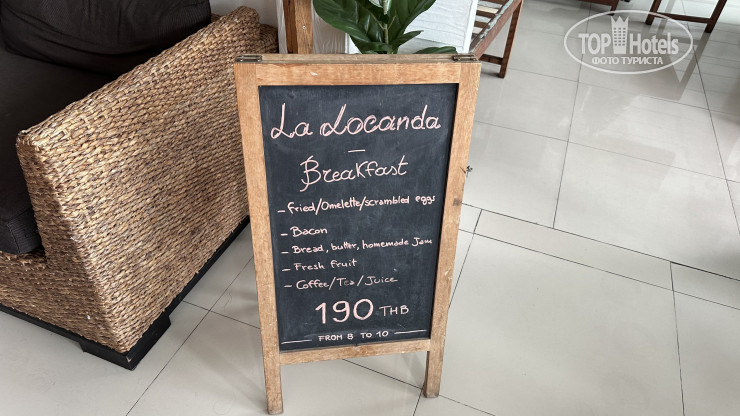 TOP Hotels
ФОТО ТУРИСТА
La Locanda
—
Breakfast
- fried/Omelette/scrambled eggs
- Bacon
- Bread, butter, homemade Jam
- Fresh fruit
- Coffee/Tea/Juice
190 THB
— FROM 8 TO 10 —